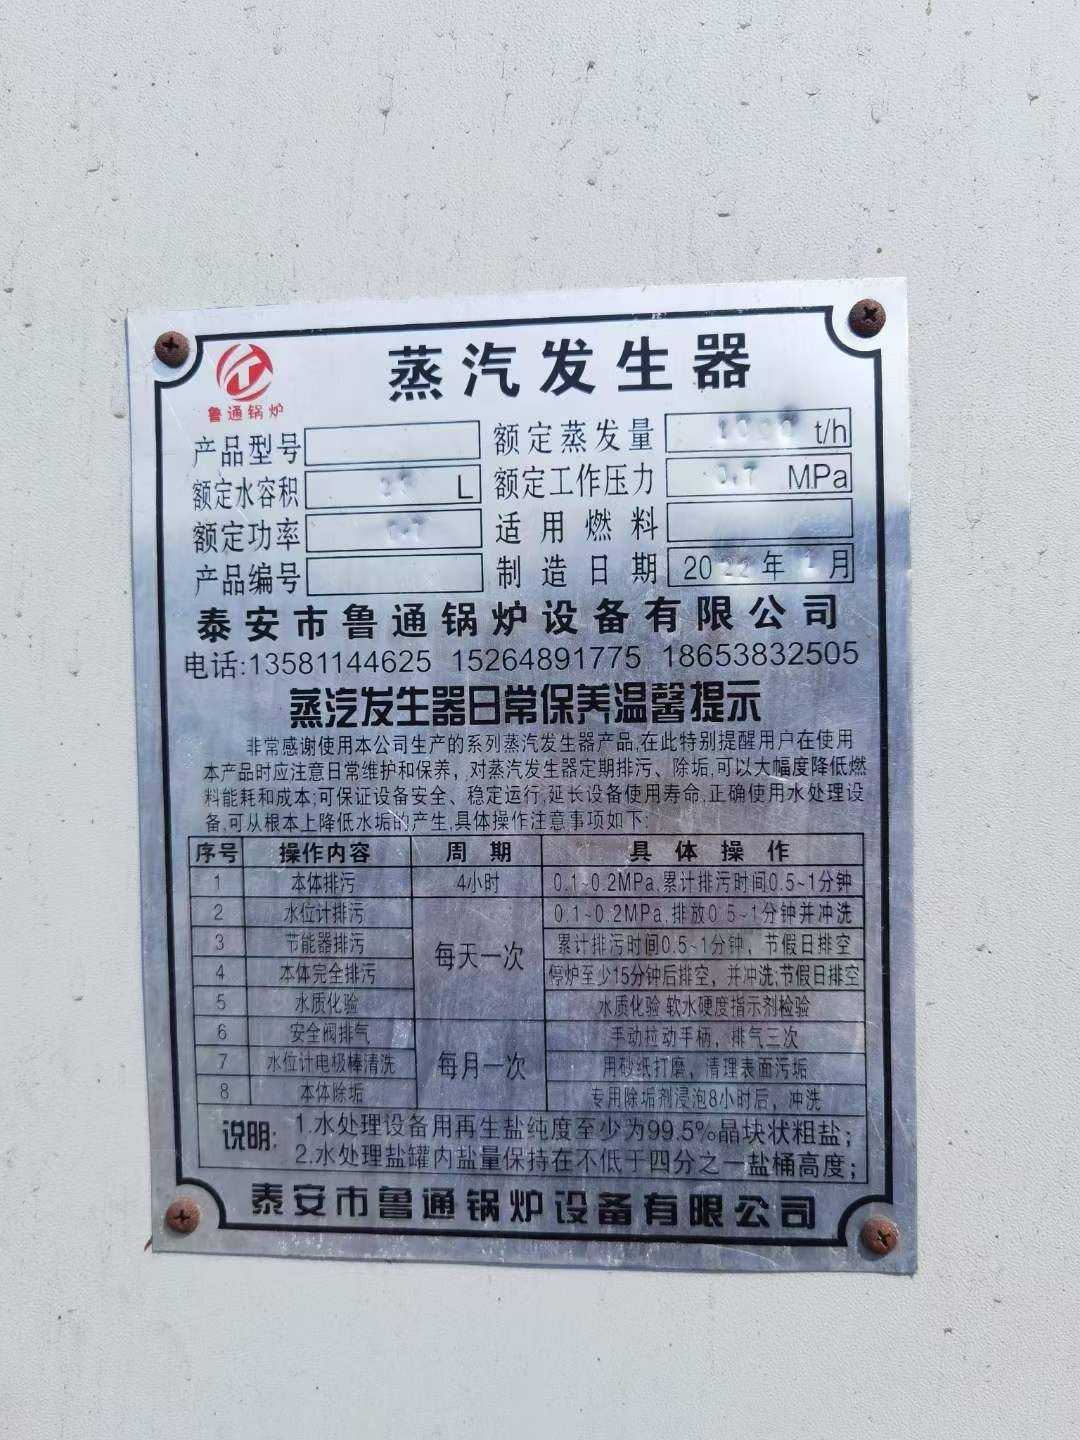 蒸汽发生器
鲁通锅炉
产品型号 额定蒸发量 1000 t/h
额定水容积 L 额定工作压力 0.7 MPa
额定功率 0.7 适用燃料
产品编号 制造日期 2022年1月
泰安市鲁通锅炉设备有限公司
电话:13581144625 15264891775 18653832505
蒸汽发生器日常保养温馨提示
非常感谢使用本公司生产的系列蒸汽发生器产品,在此特别提醒用户在使用
本产品时应注意日常维护和保养，对蒸汽发生器定期排污、除垢,可以大幅度降低燃
料能耗和成本;可保证设备安全、稳定运行,延长设备使用寿命,正确使用水处理设
备,可从根本上降低水垢的产生,具体操作注意事项如下:
序号 操作内容 周期 具体操作
1 本体排污 4小时 0.1~0.2MPa,累计排污时间0.5~1分钟
2 水位计排污 每天一次 0.1~0.2MPa,排放0.5~1分钟并冲洗
3 节能器排污 累计排污时间0.5~1分钟，节假日排空
4 本体完全排污 停炉至少15分钟后排空，并冲洗;节假日排空
5 水质化验 水质化验 软水硬度指示剂检验
6 安全阀排气 每月一次 手动拉动手柄，排气三次
7 水位计电极棒清洗 用砂纸打磨，清理表面污垢
8 本体除垢 专用除垢剂浸泡8小时后，冲洗
说明: 1.水处理设备用再生盐纯度至少为99.5%晶块状粗盐；
2.水处理盐罐内盐量保持在不低于四分之一盐桶高度；
泰安市鲁通锅炉设备有限公司